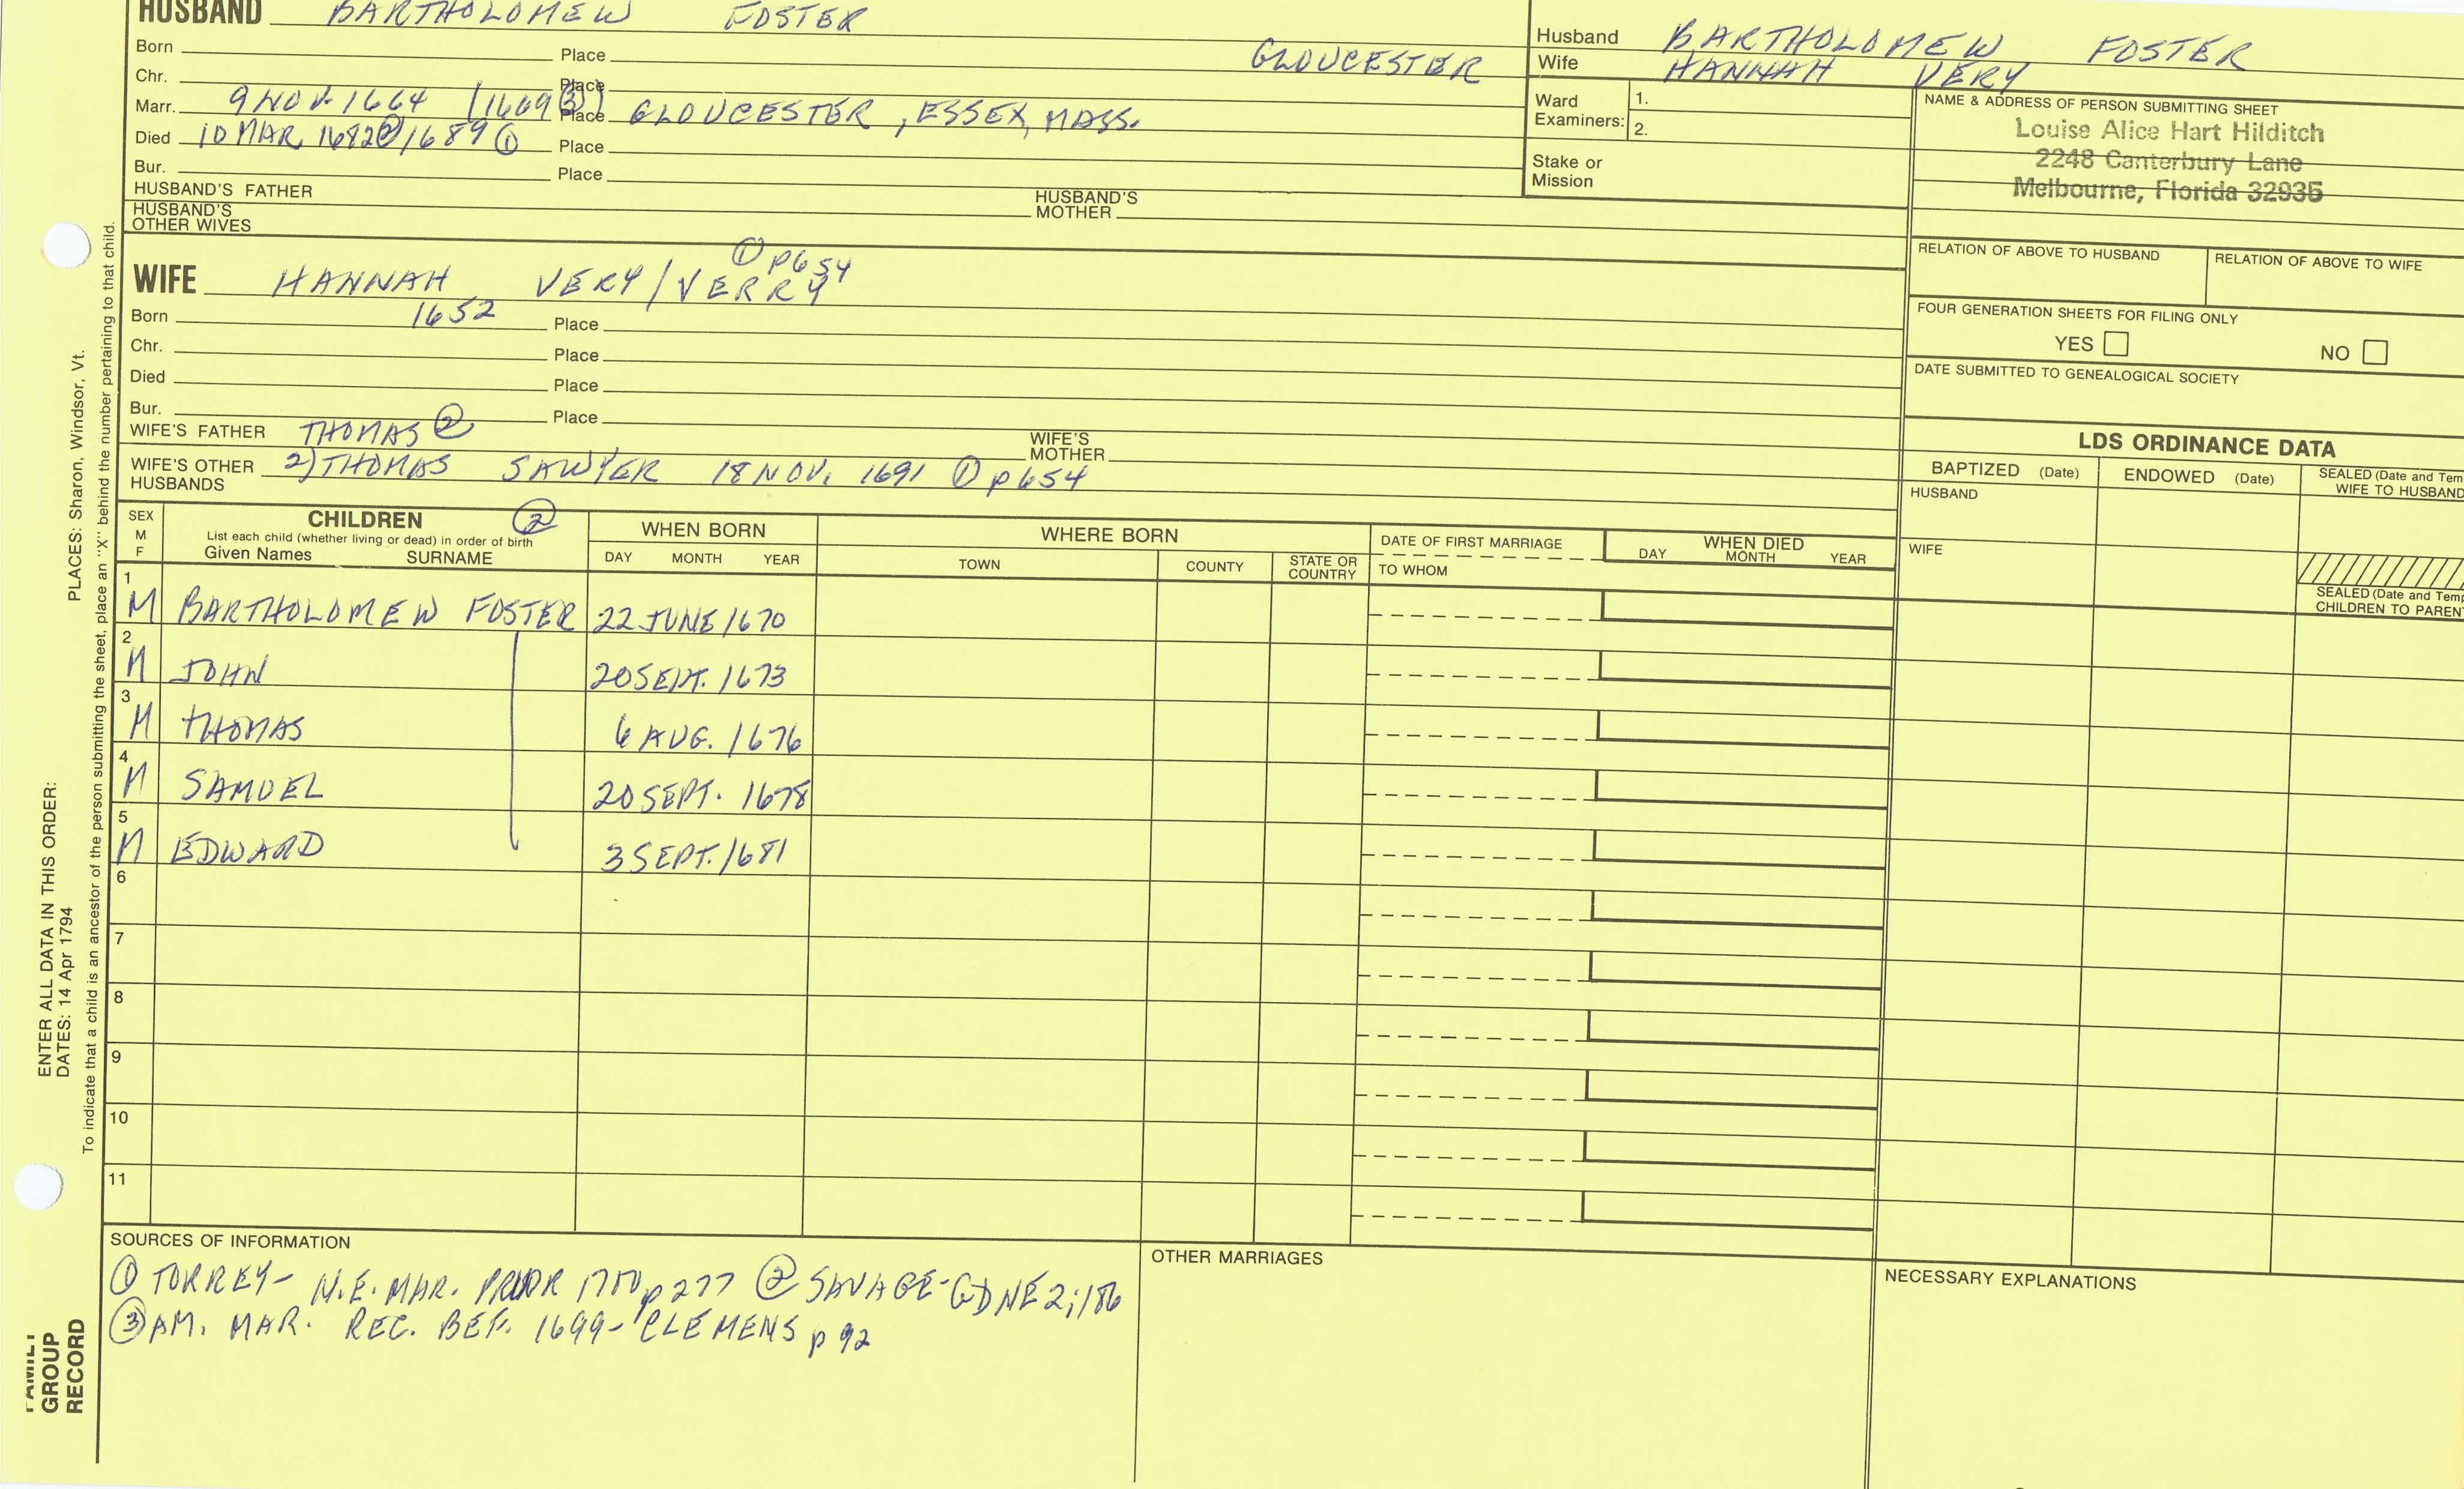 HUSBAND BARTHOLOMEW FOSTER
Born Place GLOUCESTER
Chr. Place
Marr. 9 NOV. 1664 (1669 ③) Place GLOUCESTER, ESSEX, MASS.
Died 10 MAR 1682②/1689 ① Place
Bur. Place
HUSBAND'S FATHER HUSBAND'S MOTHER
HUSBAND'S OTHER WIVES
① p654
WIFE HANNAH VERY/VERRY
Born 1652 Place
Chr. Place
Died Place
Bur. Place
WIFE'S FATHER THOMAS ② WIFE'S MOTHER
WIFE'S OTHER HUSBANDS 2) THOMAS SAWYER 18 NOV. 1691 ① p654
Husband BARTHOLOMEW FOSTER
Wife HANNAH VERY
Ward Examiners: 1.
2.
Stake or Mission
NAME & ADDRESS OF PERSON SUBMITTING SHEET
Louise Alice Hart Hilditch
2248 Canterbury Lane
Melbourne, Florida 32935
RELATION OF ABOVE TO HUSBAND RELATION OF ABOVE TO WIFE
FOUR GENERATION SHEETS FOR FILING ONLY
YES NO
DATE SUBMITTED TO GENEALOGICAL SOCIETY
LDS ORDINANCE DATA
BAPTIZED (Date) ENDOWED (Date) SEALED (Date and Tem
WIFE TO HUSBAND
HUSBAND
WIFE
SEALED (Date and Temp
CHILDREN TO PAREN
SEX M F CHILDREN ② WHEN BORN WHERE BORN DATE OF FIRST MARRIAGE WHEN DIED
List each child (whether living or dead) in order of birth
Given Names SURNAME DAY MONTH YEAR TOWN COUNTY STATE OR COUNTRY TO WHOM DAY MONTH YEAR
1 M BARTHOLOMEW FOSTER 22 JUNE 1670
2 M JOHN 20 SEPT. 1673
3 M THOMAS 6 AUG. 1676
4 M SAMUEL 20 SEPT. 1678
5 M EDWARD 3 SEPT. 1681
6
7
8
9
10
11
SOURCES OF INFORMATION
① TORREY- N.E. MAR. PRIOR 1700 p277 ② SAVAGE-GDNE 2;186
③ AM. MAR. REC. BEF. 1699- CLEMENS p 92
OTHER MARRIAGES
NECESSARY EXPLANATIONS
ENTER ALL DATA IN THIS ORDER:
DATES: 14 Apr 1794 PLACES: Sharon, Windsor, Vt.
To indicate that a child is an ancestor of the person submitting the sheet, place an "X" behind the number pertaining to that child.
FAMILY
GROUP
RECORD